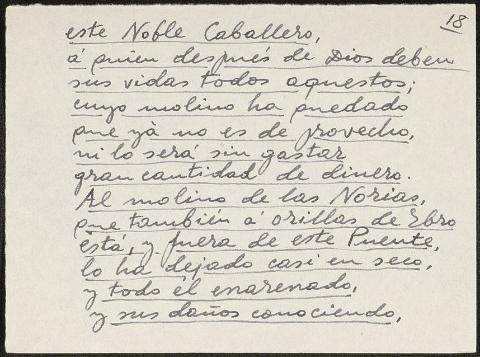 18
este Noble Caballero,
á quien después de Dios deben
sus vidas todos aquestos;
cuyo molino ha quedado
que yà no es de provecho,
ni lo será sin gastar
gran cantidad de dinero.
Al molino de las Norias,
que también á orillas de Ebro
está, y fuera de este Puente,
lo ha dejado casi en seco,
y todo él enarenado,
y sus daños conociendo,